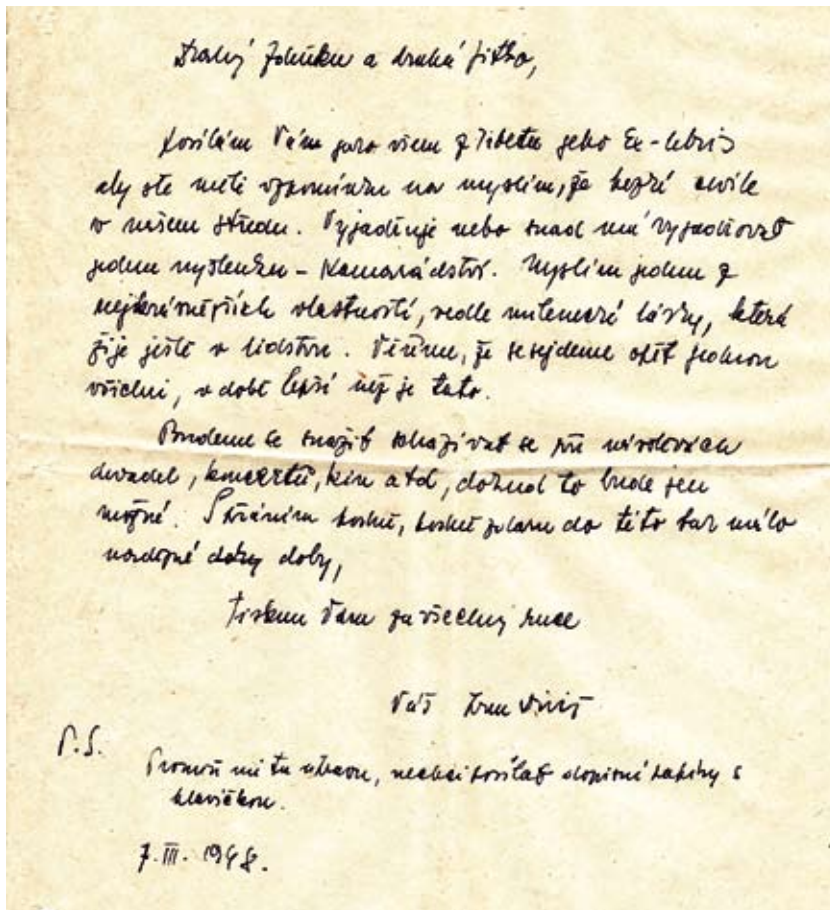 Drahý Zdeňku a drahá Jitko,
posílám Vám jako všem z Tibetu jeho Ex-libris
aby ste měli vzpomínku na myslím, že hezké chvíle
v našem středu. Vyjadřuje nebo snad má vyjadřovat
jednu myšlenku – Kamarádství. Myslím jednu z
nejkrásnějších vlastností, vedle milenecké lásky, která
žije ještě v lidstvu. Věříme, že se sejdeme opět jednou
všichni, v době lepší než je tato.
Budeme se snažit scházívat se při návštěvách
divadel, koncertů, kin atd, dokud to bude jen
možné. S přáním hodně, hodně zdaru do této tak málo
nadějné doby,
tisknu Vám za všechny ruce
Váš Ivan Diviš
P.S.
Promiň mi tu úpravu, nechci posílat dopisní papíry s
hlavičkou.
7. III. 1948.